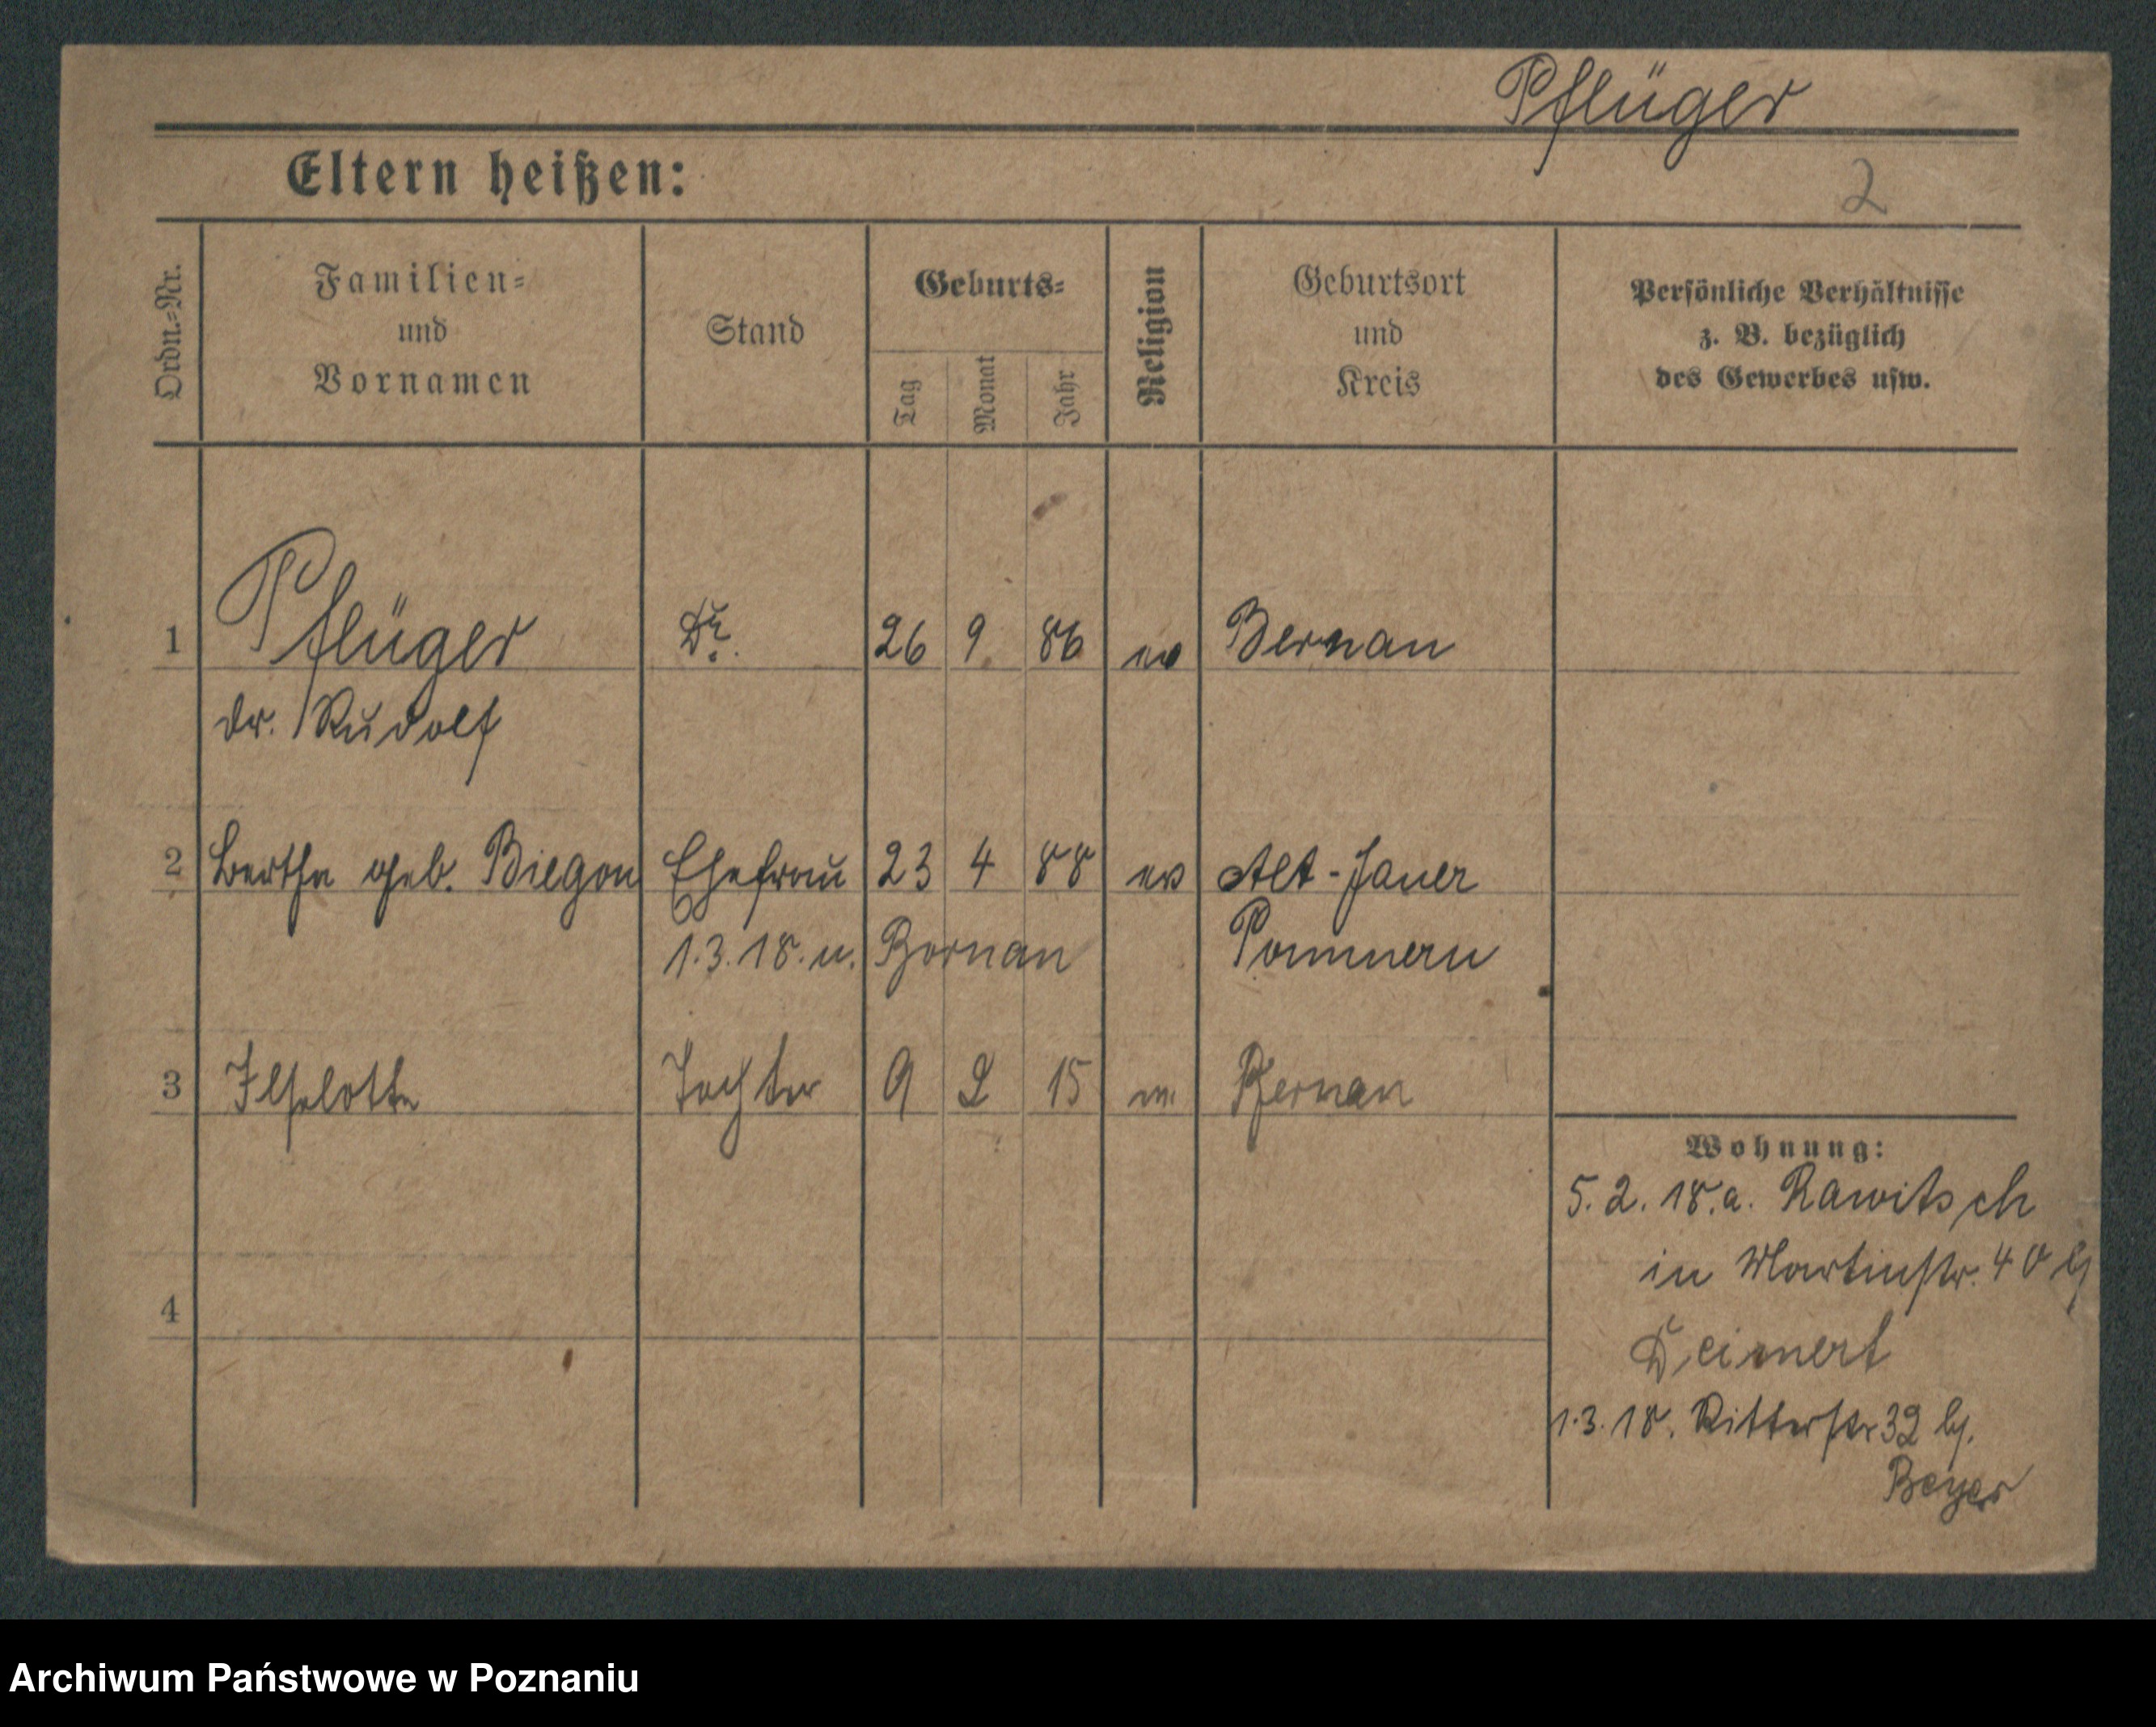 Pflüger
Eltern heißen:
2
Ordn.=Nr.
Familien=
und
Vornamen
Stand
Geburts=
Tag
Monat
Jahr
Religion
Geburtsort
und
Kreis
Persönliche Verhältnisse
z. B. bezüglich
des Gewerbes usw.
1 Pflüger Dr. 26 9 86 ev Bernau
Dr. Rudolf
2 Bertha geb. Biegon Ehefrau 23 4 88 ev Alt-Jauer
1.3.18. u. Bernau Pommern
3 Ilselotte Tochter 9 2 15 Bernau
4
Wohnung:
5. 2. 18. a. Rawitsch
in Martinstr. 40 b/
Deinert
1.3.18. Ritterstr 32 b/.
Beyer
Archiwum Państwowe w Poznaniu